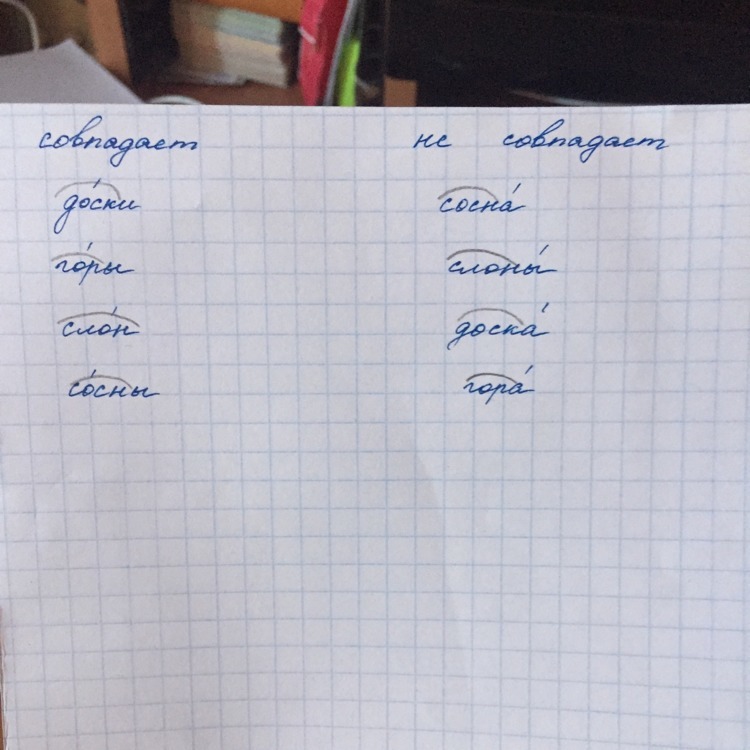 совпадает не совпадает
до́ски сосна́
го́ры слоны́
сло́н доска́
со́сны гора́